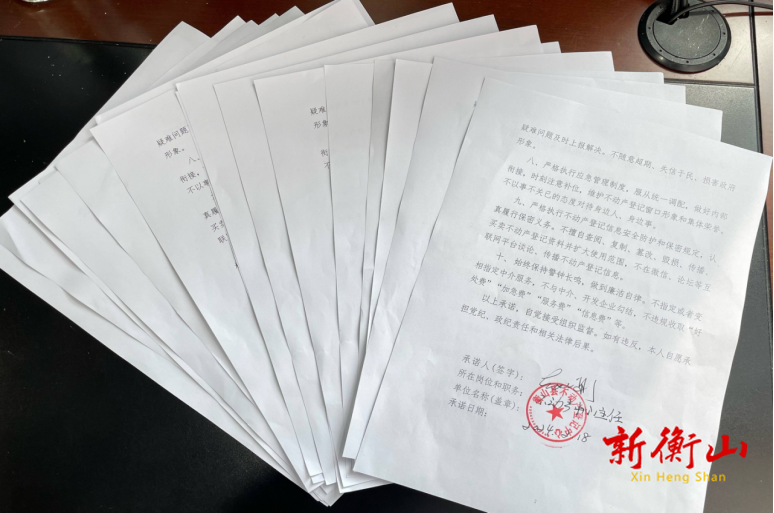 疑难问题及时上报解决，不随意超限、失信于民、损害政府
形象。
八、严格执行应急管理制度，服从统一调配，做好内部
衔接，时刻注意补位，维护不动产登记窗口形象和集体荣誉，
不以事不关己的态度对待身边人、身边事。
九、严格执行不动产登记信息安全防护和保密规定，认
真履行保密义务。不擅自查阅、复制、篡改、毁损、传播、
买卖不动产登记资料并扩大使用范围，不在微信、论坛等互
联网平台谈论、传播不动产登记信息。
十、始终保持警钟长鸣，做到廉洁自律。不指定或者变
相指定中介服务，不与中介、开发企业勾结，不违规收取“好
处费”“加急费”“服务费”“信息费”等。
以上承诺，自觉接受组织监督。如有违反，本人自愿承
担党纪、政纪责任和相关法律后果。
承诺人（签字）：
所在岗位和职务：
单位名称（盖章）：
承诺日期：
疑难问题
形象。
八、
衔接，
不以事
真履行
买卖
联
疑难
形象
新衡山
Xin Heng Shan